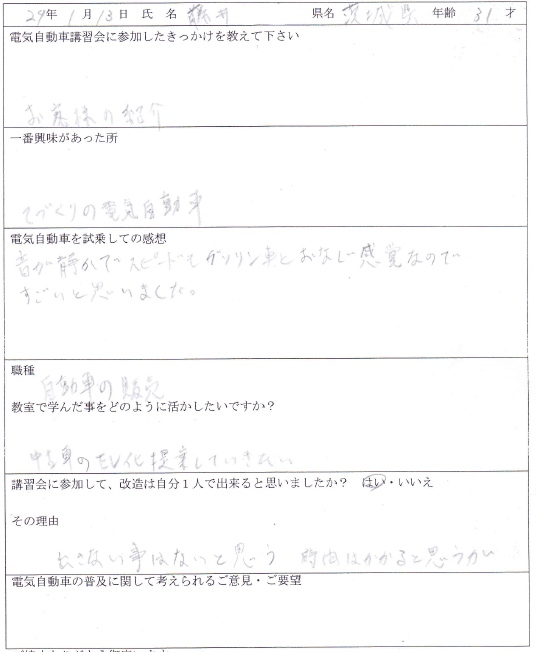 29年 1月 13日 氏 名 藤井 県名 茨城県 年齢 31 才
電気自動車講習会に参加したきっかけを教えて下さい
お客様の紹介
一番興味があった所
てづくりの電気自動車
電気自動車を試乗しての感想
音が静かでスピードもガソリン車とおなじ感覚なので
すごいと思いました。
職種
自動車の販売
教室で学んだ事をどのように活かしたいですか?
中古車のEV化提案していきたい
講習会に参加して、改造は自分1人で出来ると思いましたか? はい・いいえ
その理由
出きない事はないと思う 時間はかかると思うが
電気自動車の普及に関して考えられるご意見・ご要望